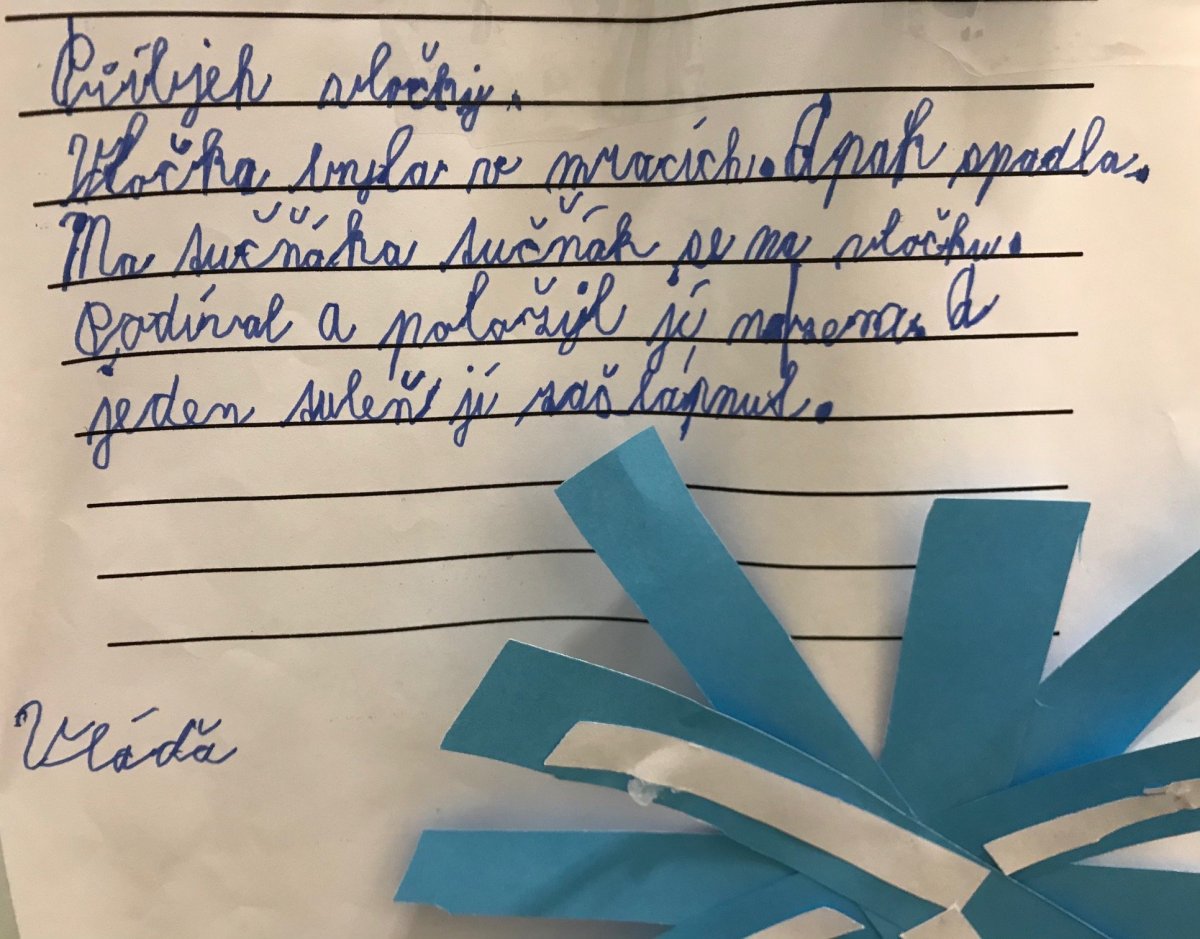 Příbjeh vločky.
Vločka byla ve mracích. A pak spadla.
Na tučňáka tučňák se na vločku.
Podíval a položil jí na zem. A
jeden tuleň jí zašlápnul.
Vláďa